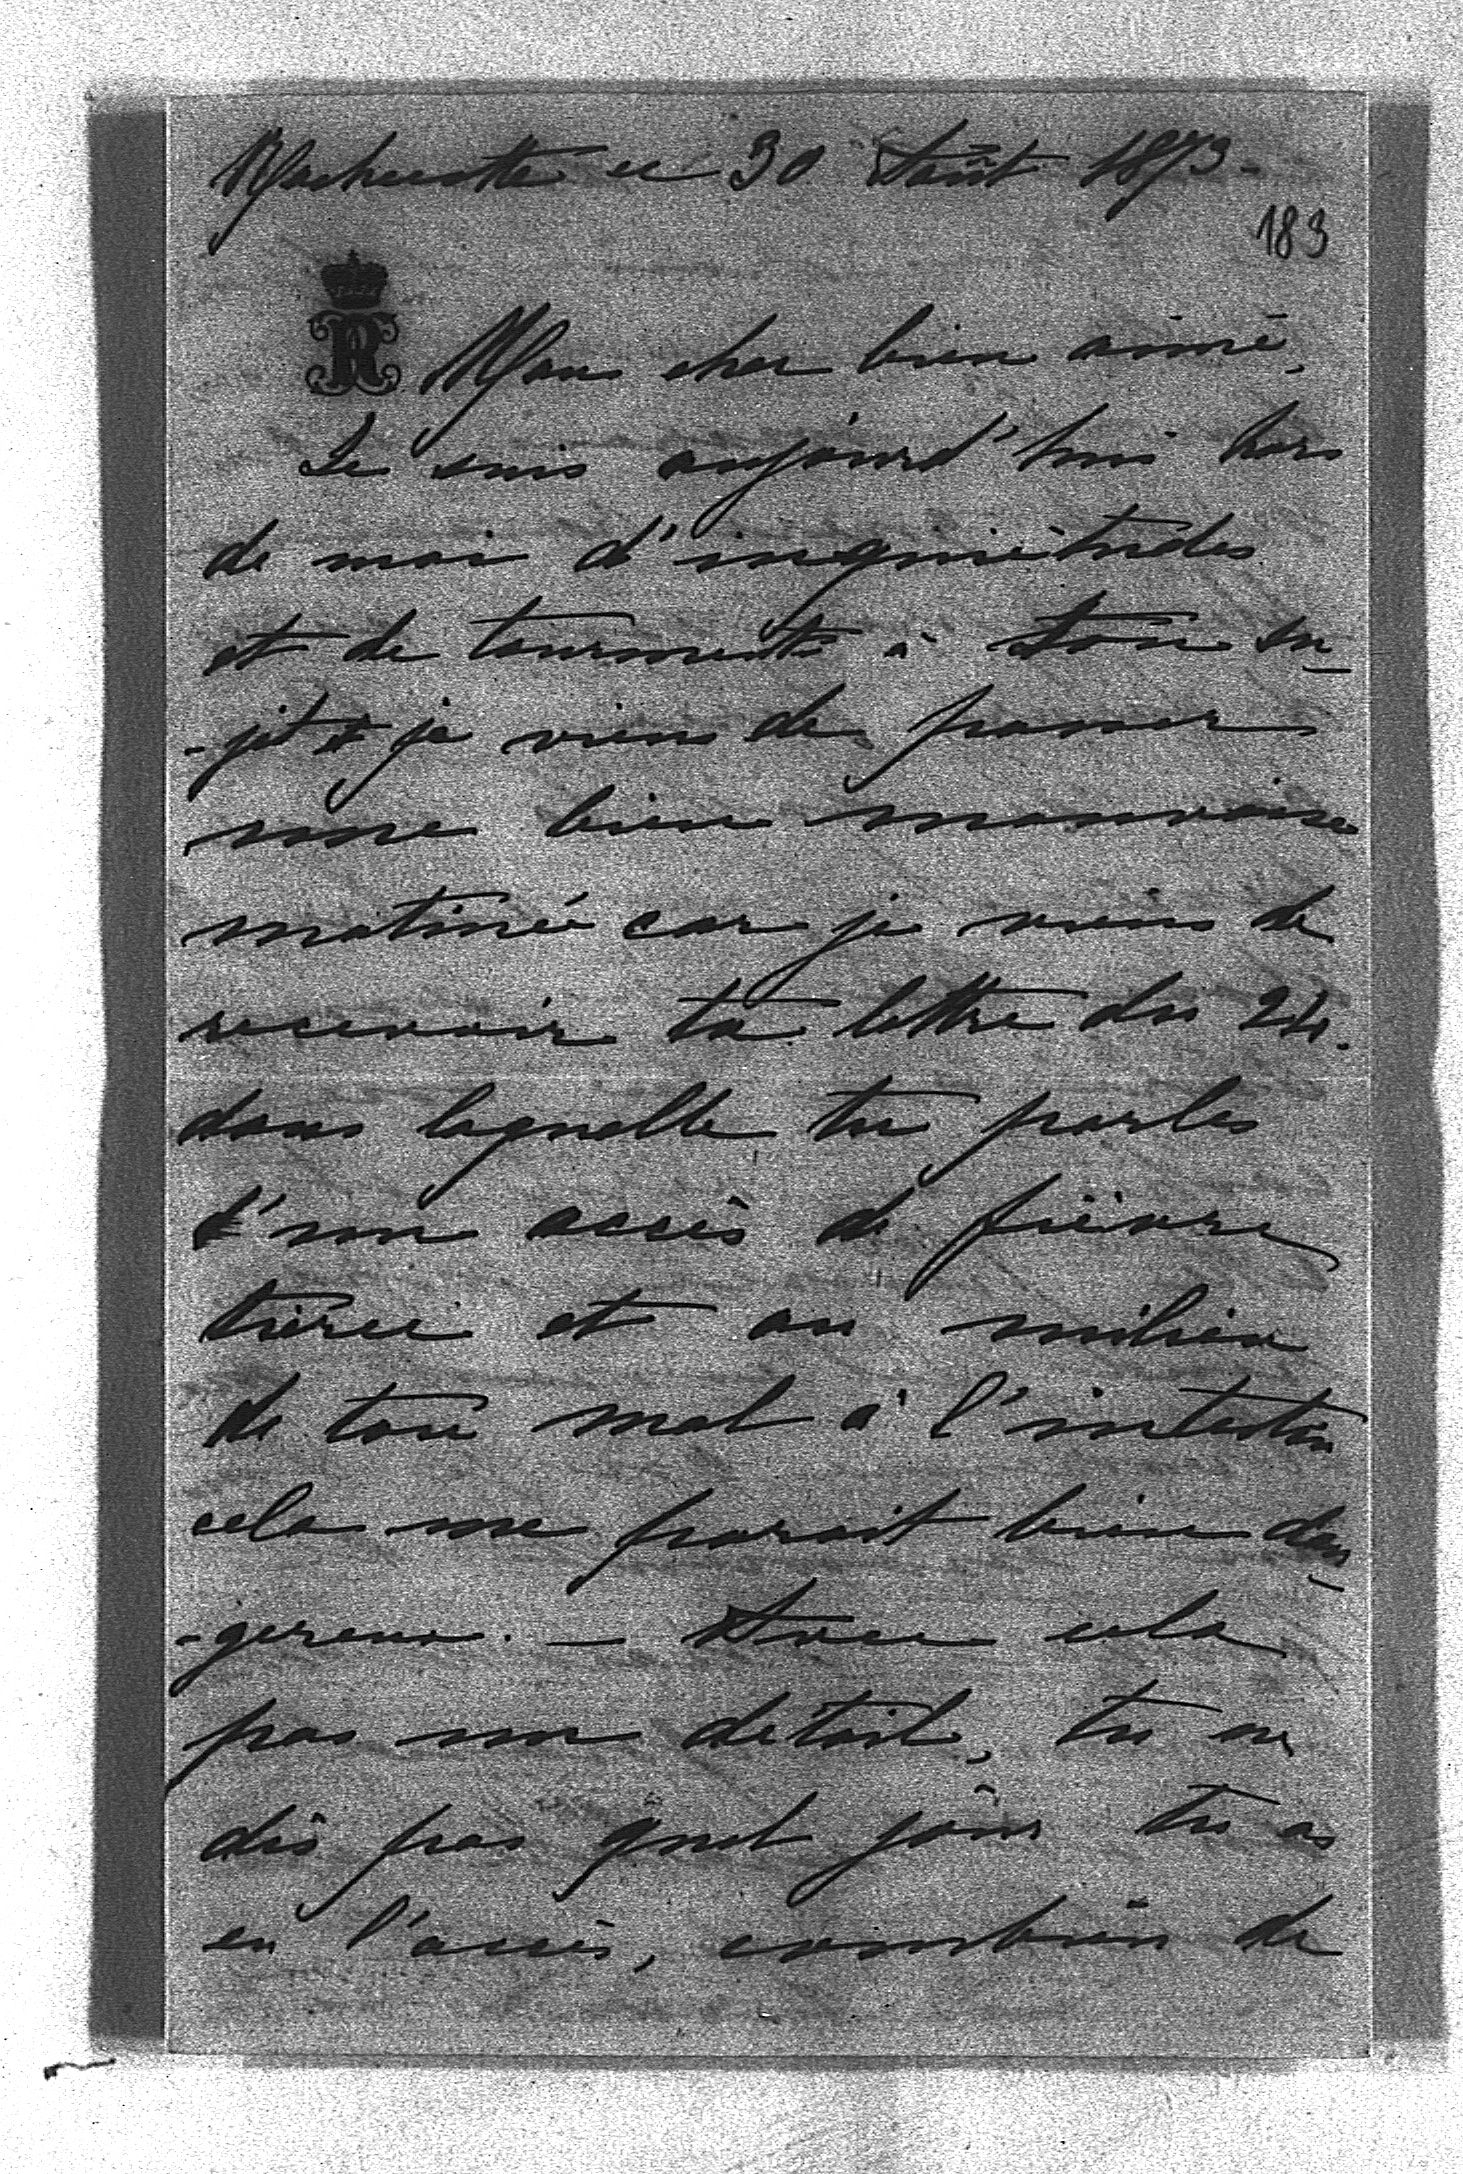 ce 30 Août 1873.
183
R
Mon cher bien aimé,
Je suis aujourd'hui hors
de moi d'inquiétudes
et de tourments à ton su-
-jet je viens de passer
une bien mauvaise
matinée car je viens de
recevoir ta lettre du 24.
dans laquelle tu parles
d'un accès de fièvre
tierce et au milieu
de ton mal à l'intestin
cela me parait bien dan-
-gereux. — Avec cela
pas un détail, tu ne
dis pas quel jour tu as
eu l'accès, combien de